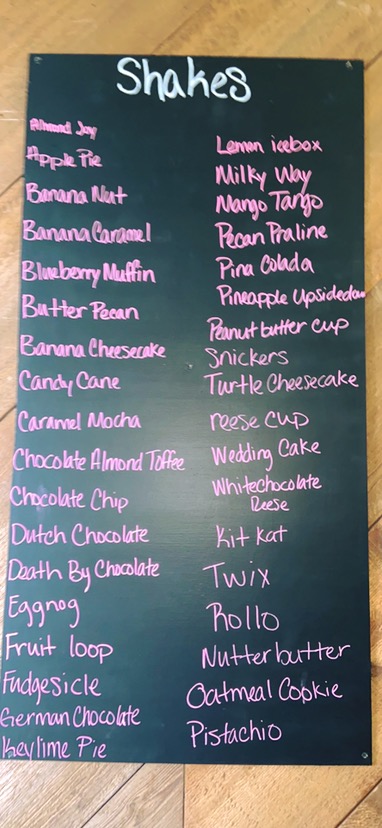 Shakes
Almond Joy
Apple Pie
Banana Nut
Banana Caramel
Blueberry Muffin
Butter Pecan
Banana Cheesecake
Candy Cane
Caramel Mocha
Chocolate Almond Toffee
Chocolate Chip
Dutch Chocolate
Death By Chocolate
Eggnog
Fruit loop
Fudgesicle
German Chocolate
Keylime Pie
Lemon icebox
Milky Way
Mango Tango
Pecan Praline
Pina Colada
Pineapple Upsidedown
Peanut butter cup
Snickers
Turtle Cheesecake
reese cup
Wedding Cake
Whitechocolate
Reese
Kit Kat
Twix
Rollo
Nutter butter
Oatmeal Cookie
Pistachio